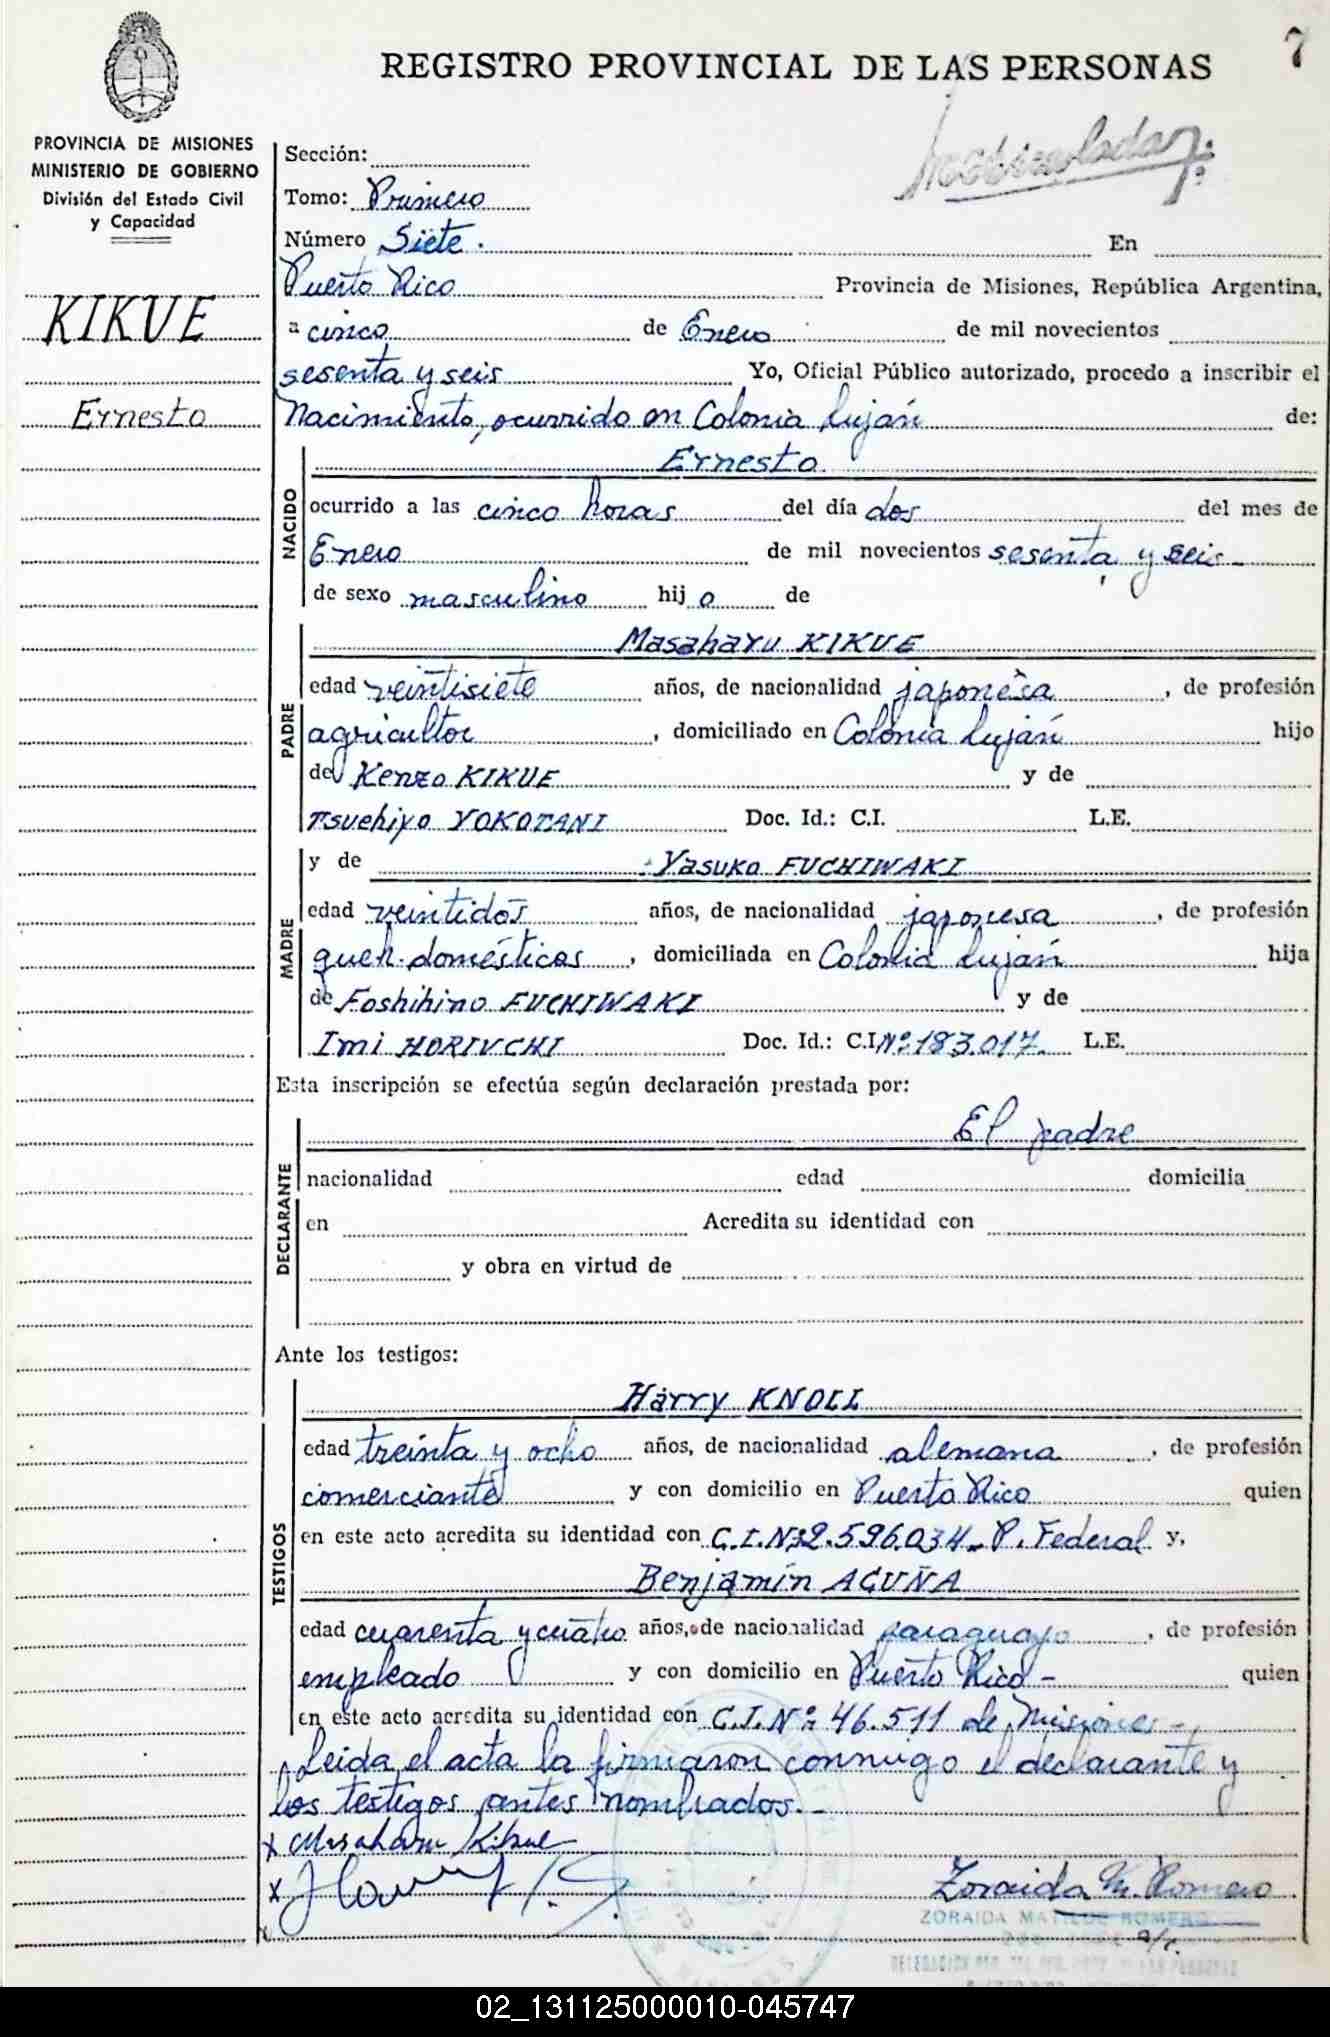 7
REGISTRO PROVINCIAL DE LAS PERSONAS
PROVINCIA DE MISIONES
MINISTERIO DE GOBIERNO
División del Estado Civil
y Capacidad
KIKUE
Ernesto
Sección:
Tomo: Primero
Número Siete. En
Puerto Rico Provincia de Misiones, República Argentina,
a cinco de Enero de mil novecientos
sesenta y seis Yo, Oficial Público autorizado, procedo a inscribir el
Nacimiento, ocurrido en Colonia Luján de:
NACIDO
Ernesto
ocurrido a las cinco horas del día dos del mes de
Enero de mil novecientos sesenta y seis -
de sexo masculino hijo de
PADRE
Masaharu KIKUE
edad veintisiete años, de nacionalidad japonesa, de profesión
agricultor, domiciliado en Colonia Luján hijo
de Kenzo KIKUE y de
Tsuehiyo YOKOTANI Doc. Id.: C.I. L.E.
MADRE
y de Yasuko FUCHIWAKI
edad veintidós años, de nacionalidad japonesa, de profesión
queh. domésticos, domiciliada en Colonia Luján hija
de Foshihino FUCHIWAKI y de
Imi HORIUCHI Doc. Id.: C.I. Nº 183.017. L.E.
Esta inscripción se efectúa según declaración prestada por:
DECLARANTE
El padre
nacionalidad edad domicilia
en Acredita su identidad con
y obra en virtud de
Ante los testigos:
TESTIGOS
Harry KNOLL
edad treinta y ocho años, de nacionalidad alemana, de profesión
comerciante y con domicilio en Puerto Rico quien
en este acto acredita su identidad con C.I. Nº 2.596.034 - P. Federal y,
Benjamín ACUÑA
edad cuarenta y cuatro años, de nacionalidad paraguayo, de profesión
empleado y con domicilio en Puerto Rico - quien
en este acto acredita su identidad con C.I. Nº 46.511 de Misiones -
Leida el acta la firmaron conmigo el declarante y
los testigos antes nombrados. -
x Masaharu Kikue
x
x
Zoraida M. Romero
ZORAIDA MATILDE ROMERO
a/c.
02_131125000010-045747